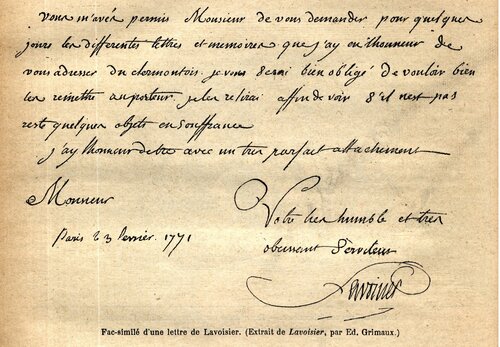 vous m'avés permis Monsieur de vous demander pour quelques
jours les differentes lettres et memoires que j'ay eu l'honneur de
vous adresser du clermontois je vous serai bien obligé de vouloir bien
les remettre au porteur je les relirai affin de voir s'il n'est pas
resté quelques objets en souffrance
j'ay l'honneur d'etre avec un tres parfait attachement
Monsieur
Votre tres humble et tres
Paris le 3 fevrier 1771
obeissant Serviteur
Lavoisier
Fac-similé d'une lettre de Lavoisier. (Extrait de Lavoisier, par Ed. Grimaux.)